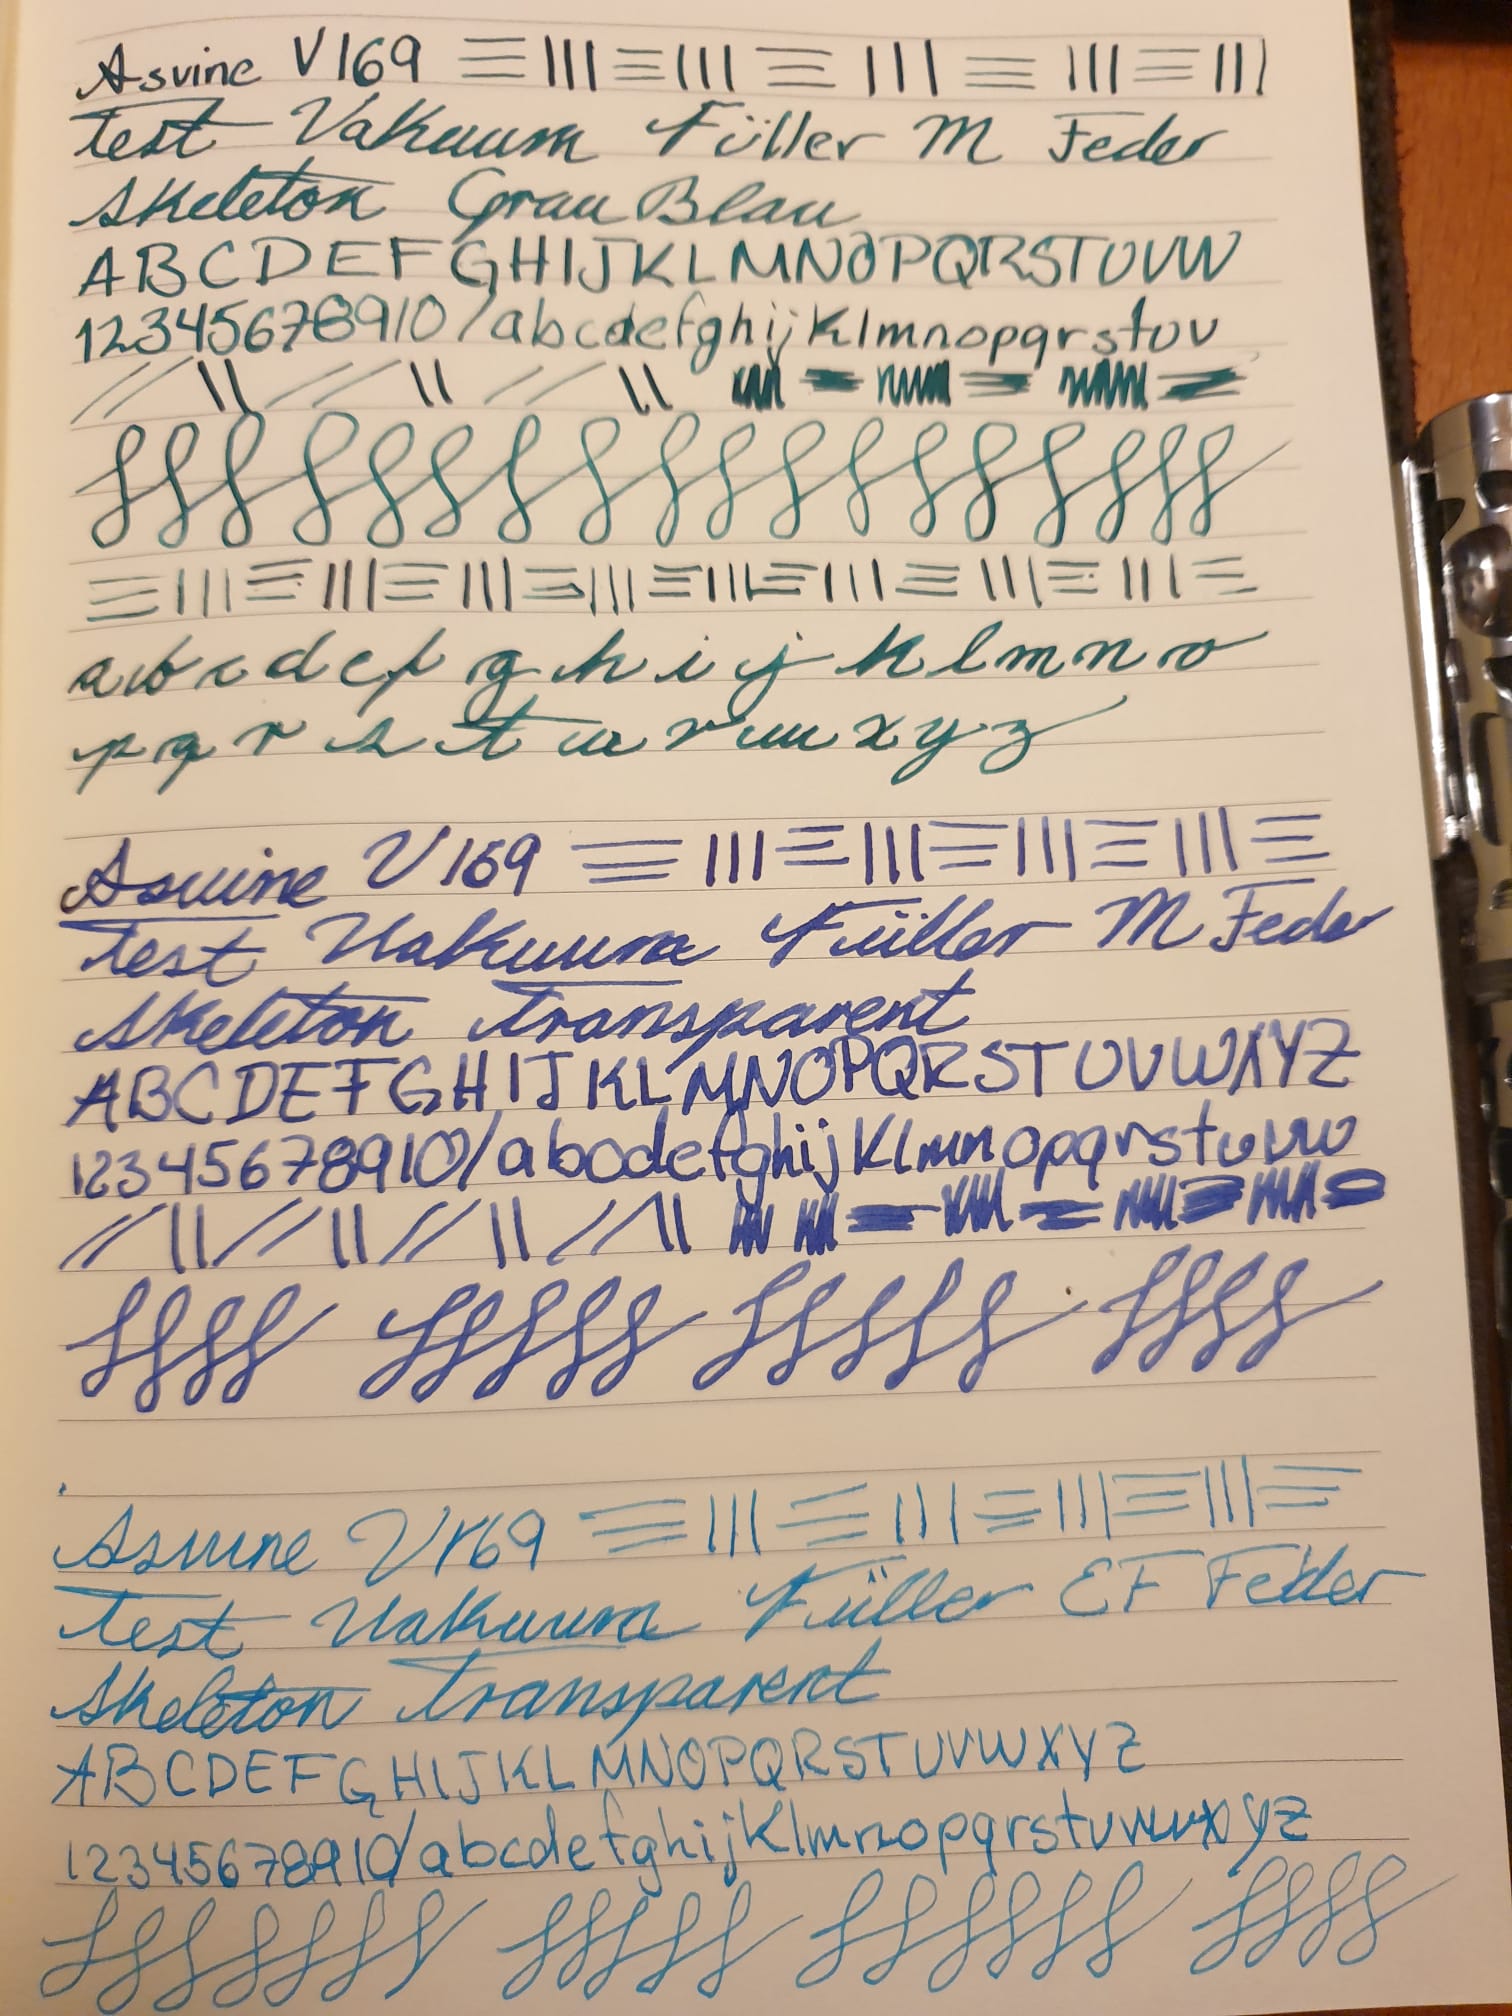 Asvine V169
Test Vakuum Füller M Feder
Skeleton Grau Blau
ABCDEFGHIJKLMNOPQRSTUVW
12345678910/abcdefghijklmnopqrstuv
abcdefghijklmno
pqrstuvwxyz
Asvine V169
Test Vakuum Füller M Feder
Skeleton Transparent
ABCDEFGHIJKLMNOPQRSTUVWXYZ
12345678910/abcdefghijklmnopqrstuvw
Asvine V169
Test Vakuum Füller EF Feder
Skeleton Transparent
ABCDEFGHIJKLMNOPQRSTUVWXYZ
12345678910/abcdefghijklmnopqrstuvwxyz